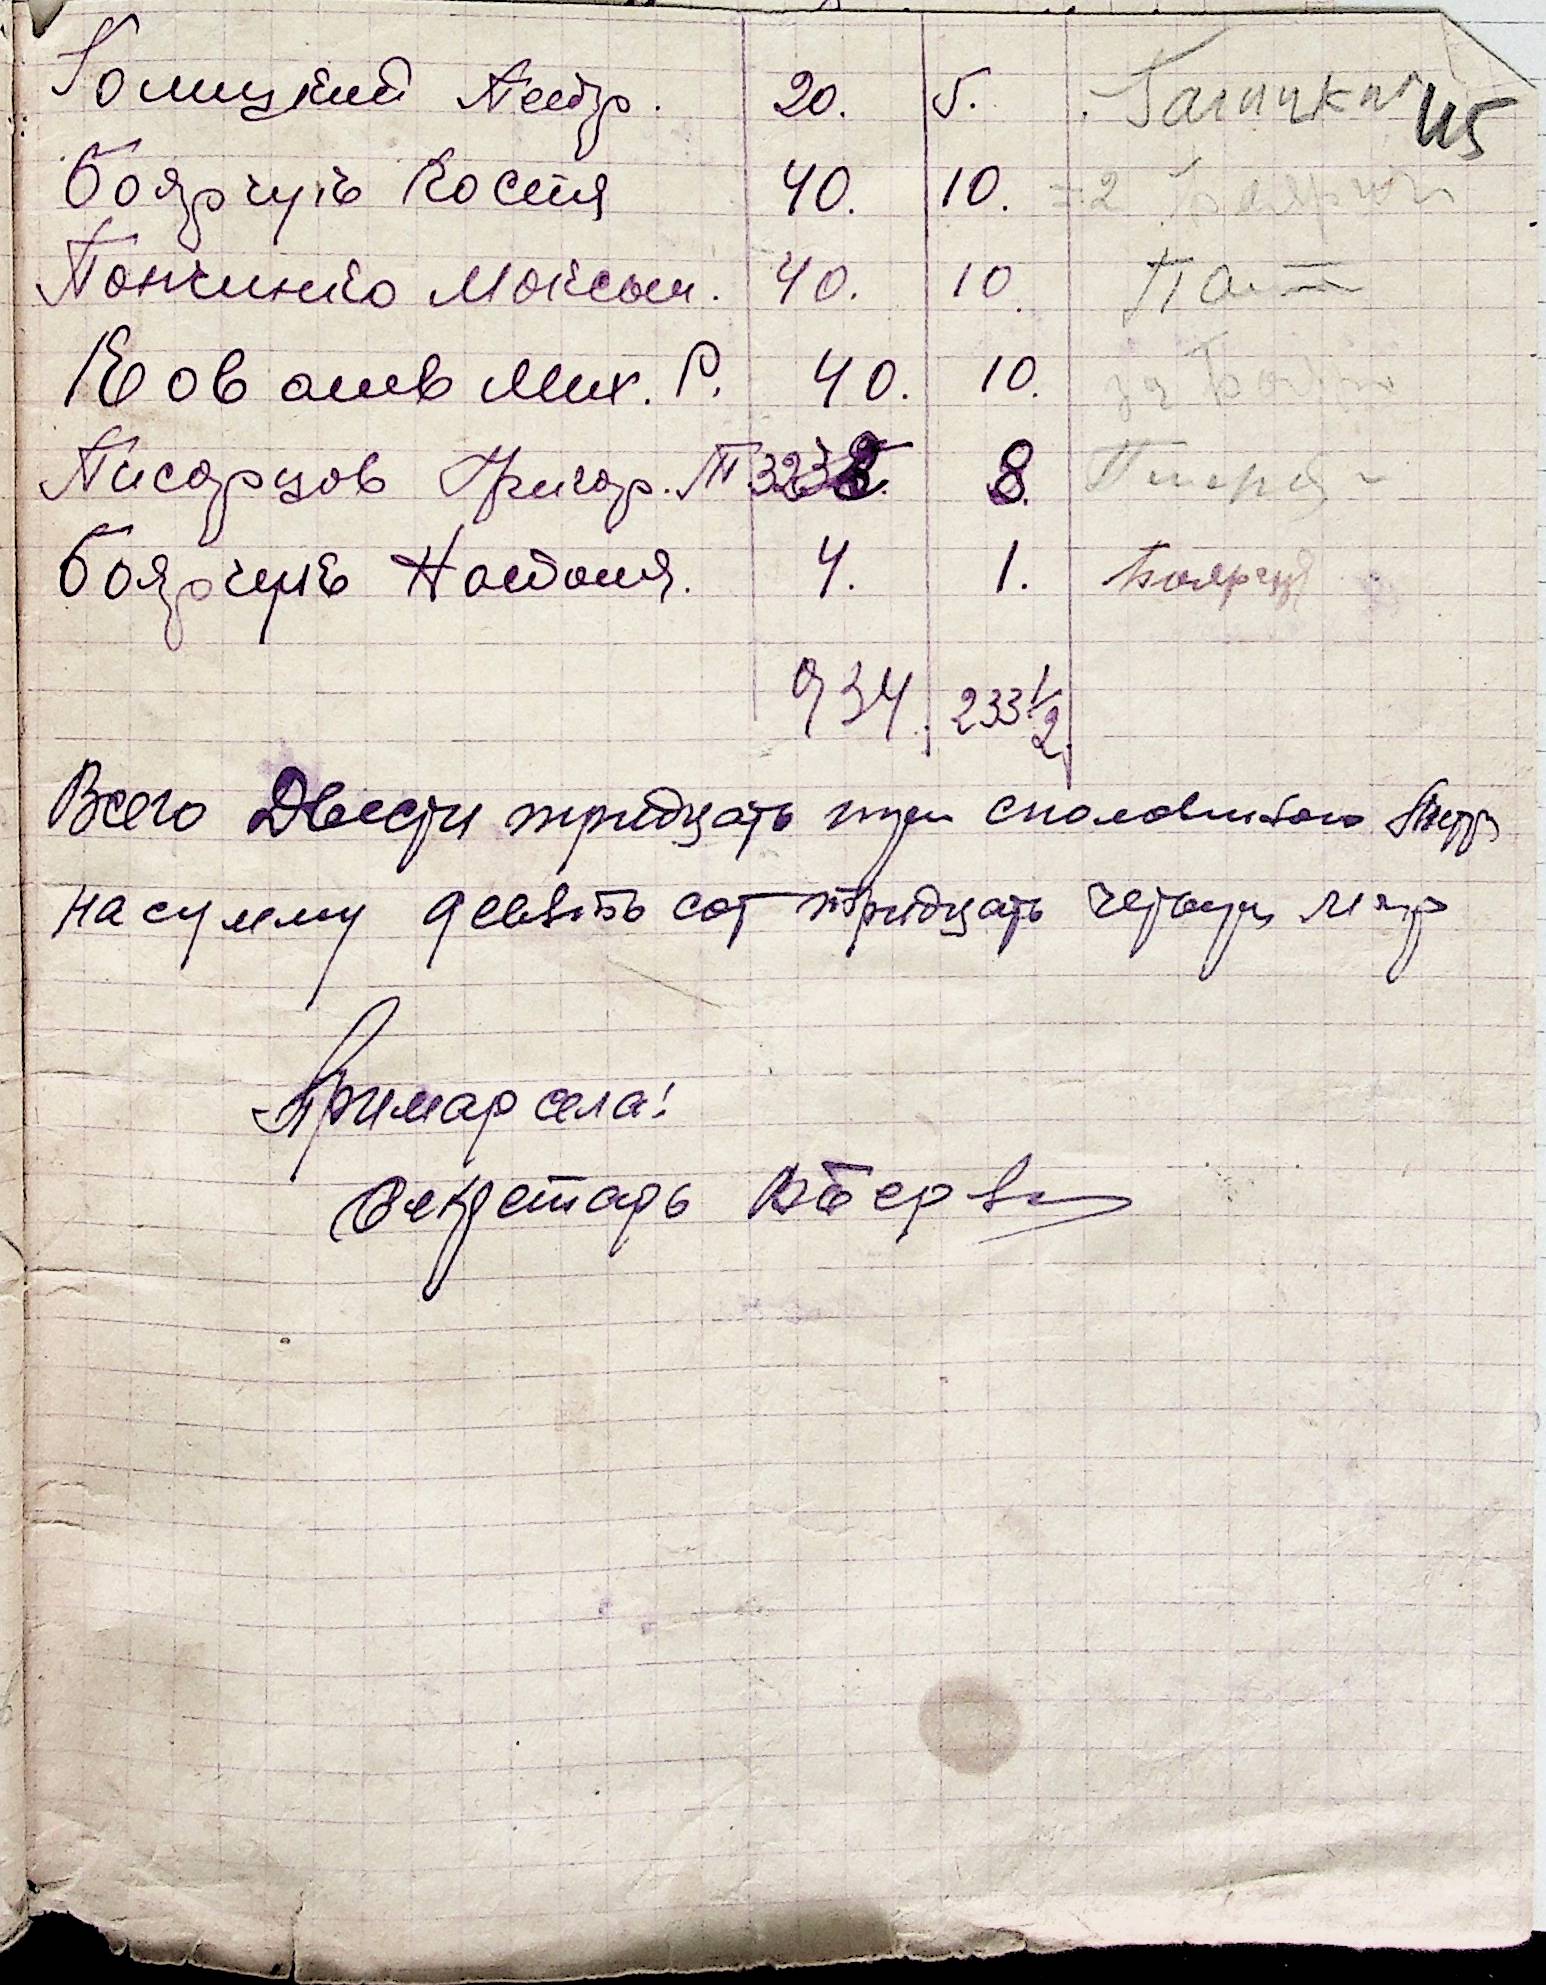 Голицкий Петр. 20. 5. Галицкий 45
Боярчук Костя 40. 10.
Панченко Максим. 40. 10.
Ковалив Мих. Р. 40. 10.
Писарцов Григор. 8.
Боярчук Наталия. 4. 1. Боярчук
934. 233 1/2
Всего Двести тридцать три споловиною
на сумму девять сот тридцать четыри мар
Примар села:
Секретарь